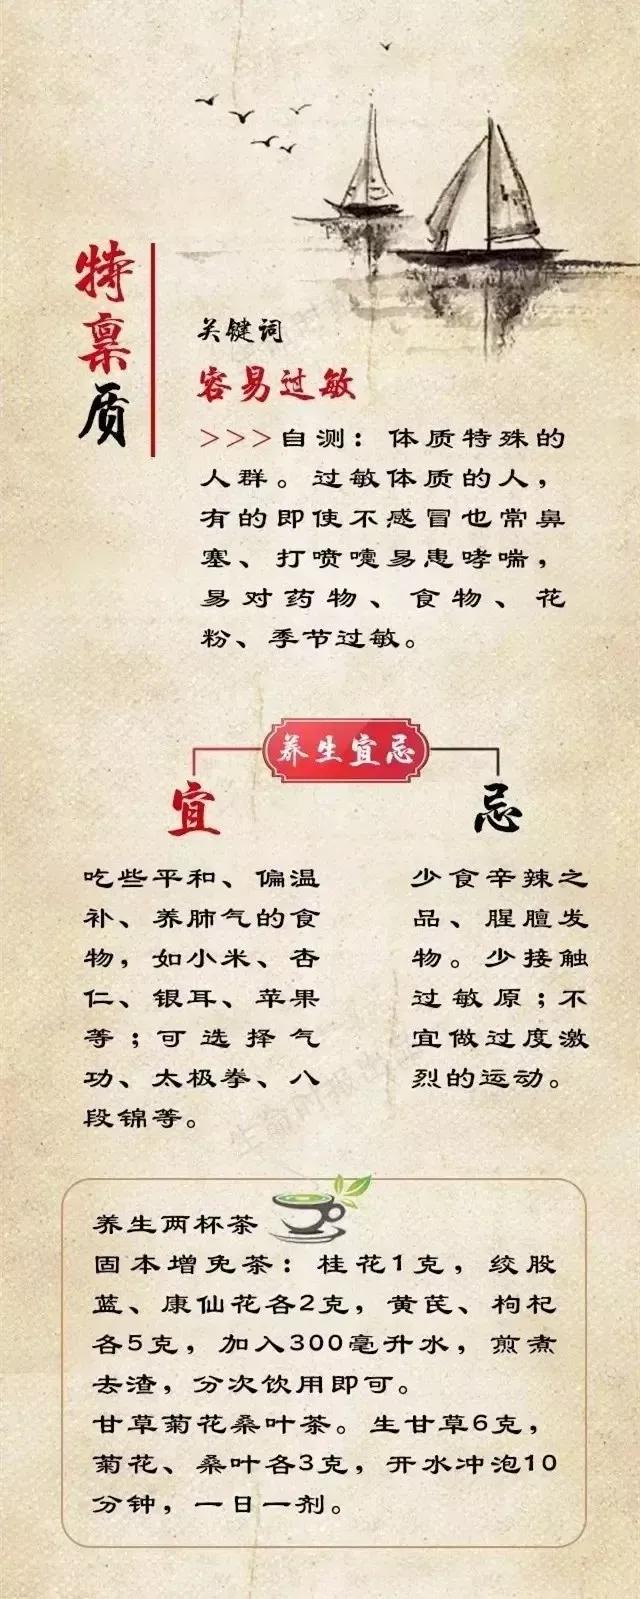 特禀质
关键词
容易过敏
>>>自测：体质特殊的
人群。过敏体质的人，
有的即使不感冒也常鼻
塞、打喷嚏易患哮喘，
易对药物、食物、花
粉、季节过敏。
养生宜忌
宜
吃些平和、偏温
补、养肺气的食
物，如小米、杏
仁、银耳、苹果
等；可选择气
功、太极拳、八
段锦等。
忌
少食辛辣之
品、腥膻发
物。少接触
过敏原；不
宜做过度激
烈的运动。
养生两杯茶
固本增免茶：桂花1克，绞股
蓝、康仙花各2克，黄芪、枸杞
各5克，加入300毫升水，煎煮
去渣，分次饮用即可。
甘草菊花桑叶茶。生甘草6克，
菊花、桑叶各3克，开水冲泡10
分钟，一日一剂。